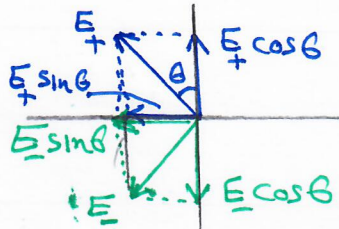 E+
E+ cosθ
θ
E+ sinθ
E- sinθ
E-
E- cosθ